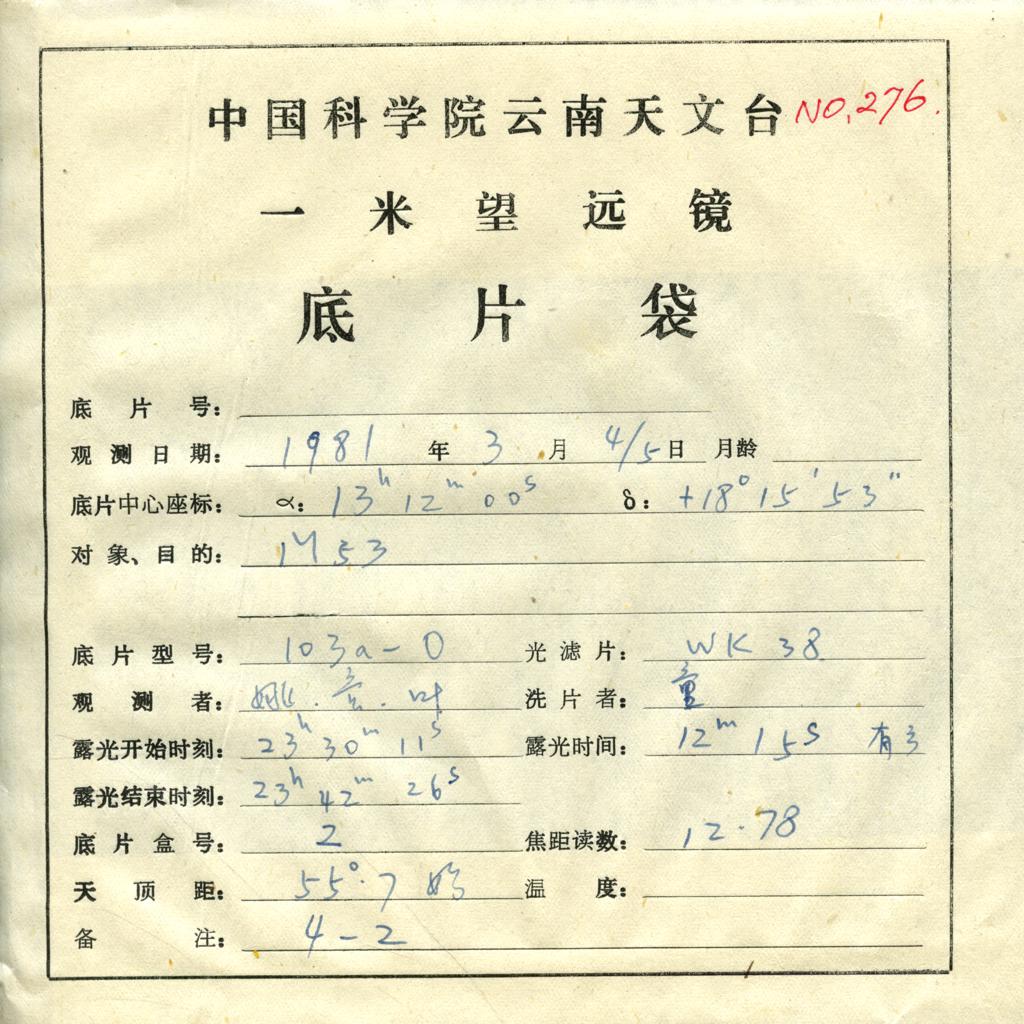 中国科学院云南天文台 NO.276.
一米望远镜
底片袋
底片号:
观测日期: 1981 年 3 月 4/5 日 月龄
底片中心座标: α: 13h 12m 00s δ: +18° 15′ 53″
对象、目的: M 53
底片型号: 103a-O 光滤片: WK 38
观测者: 姚. 童. 叶 洗片者: 童
露光开始时刻: 23h 30m 11s 露光时间: 12m 15s 有
露光结束时刻: 23h 42m 26s
底片盒号: 2 焦距读数: 12.78
天顶距: 55°.7 始 温度:
备注: 4-2